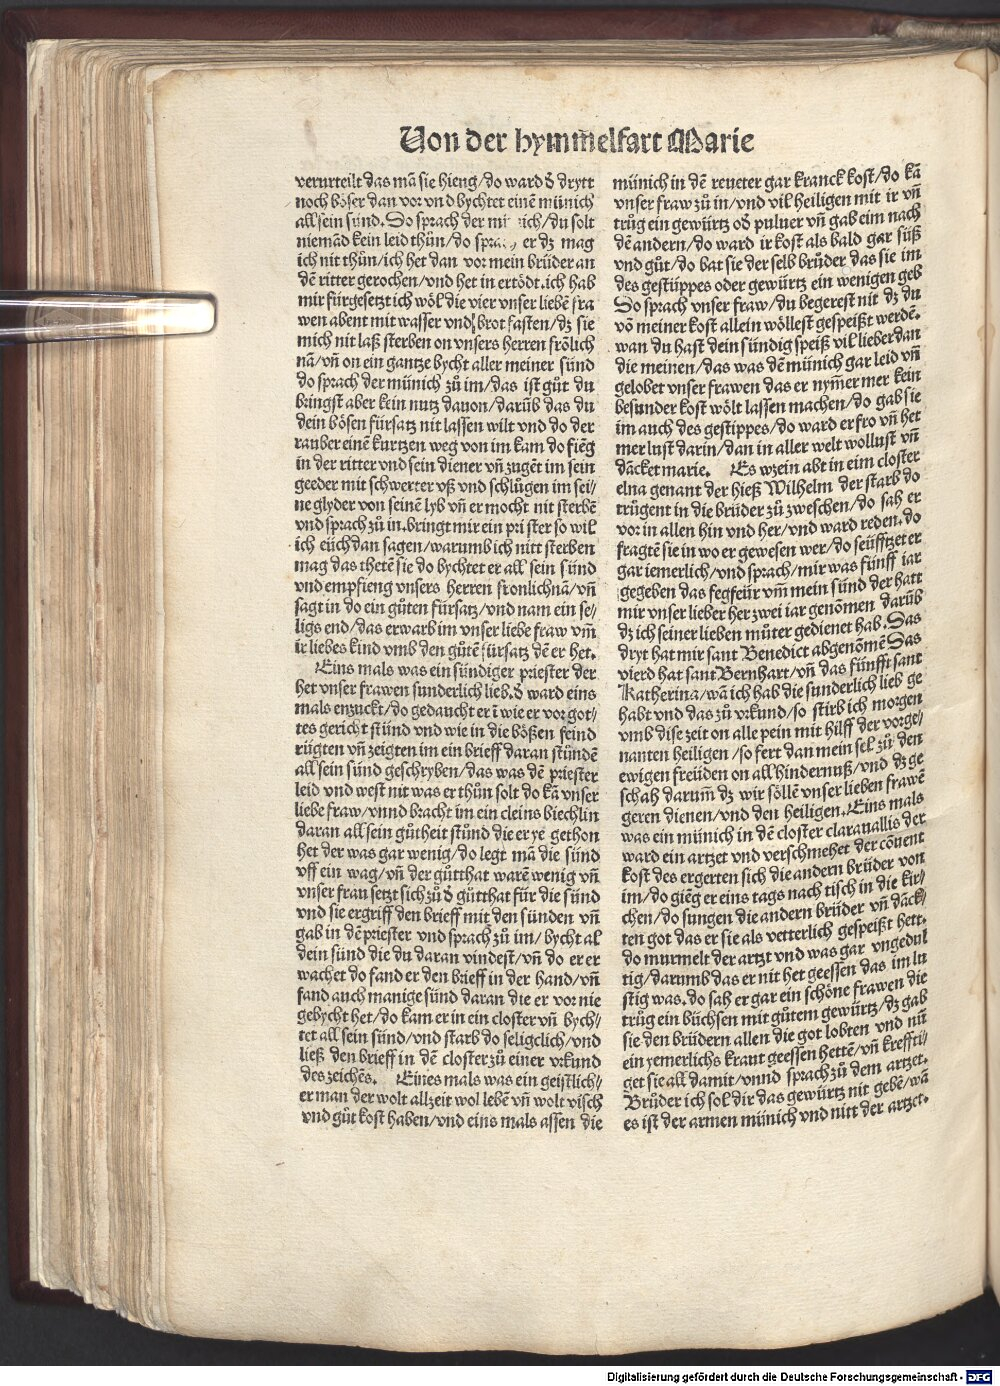 Von der hym̃elfart Marie
verurteilt das mā sie hieng/do ward d̕ drytt
noch böser dan vor vnd bychtet einē münich
all sein sünd. So sprach der mi ich/du solt
niemād kein leid thůn/do sprac er dz mag
ich nit thůn/ich het dan vor mein brůder an
dē ritter gerochen/vnd het in ertödt. ich hab
mir fürgesetzt ich wöl die vier vnser liebē fra
wen abent mit wasser vnd brot fasten/dz sie
mich nit laß sterben on vnsers herren frölich
nā/vn̄ on ein gantze bycht aller meiner sünd
do sprach der münich zů im/das ist gůt du
bringst aber kein nutz dauon/darūb das du
dein bösen fürsatz nit lassen wilt vnd do der
rauber einē kurtzen weg von im kam do fiēg
in der ritter vnd sein diener vn̄ zugēt im sein
geeder mit schwerter vß vnd schlůgen im sei/
ne glyder von seinē lyb vn̄ er mocht nit sterbē
vnd sprach zů in. bringt mir ein pri ster so wil
ich eüch dan sagen/warumb ich nitt sterben
mag das thetē sie do bychtet er all sein sünd
vnd empfieng vnsers herren fronlichnā/vn̄
sagt in do ein gůten fürsatz/vnd nam ein se/
ligs end/das erwarb im vnser liebe fraw vm̄
ir liebes kind vmb den gůtē fürsatz dē er het.
Eins mals was ein sündiger priester der
het vnser frawen sunderlich lieb. d̕ ward eins
mals enzuckt/do gedaucht er ī wie er vor got/
tes gericht stünd vnd wie in die bößen feind
rügten vn̄ zeigten im ein brieff daran stůndē
all sein sünd geschryben/das was dē priester
leid vnd west nit was er thůn solt do kā vnser
liebe fraw/vnnd bracht im ein cleins biechlin
daran all sein gůtheit stůnd die er ye gethon
het der was gar wenig/do legt mā die sünd
vff ein wag/vn̄ der gůtthat warē wenig vn̄
vnser frau setzt sich zů d̕ gůtthat für die sünd
vnd sie ergriff den brieff mit den sünden vn̄
gab in dē priester vnd sprach zů im/bycht al
dein sünd die du daran vindest/vn̄ do er er
wachet do fand er den brieff in der hand/vn̄
fand auch manige sünd daran die er vor nie
gebycht het/do kam er in ein closter vn̄ bych/
tet all sein sünd/vnd starb do seligclich/vnd
ließ den brieff in dē closter zů einer vrkund
des zeichēs. Eines mals was ein geistlich/
er man der wolt allzeit wol lebē vn̄ wolt visch
vnd gůt kost haben/vnd eins mals assen die
münich in dē reueter gar kranck kost/do kā
vnser fraw zů in/vnd vil heiligen mit ir vn̄
trůg ein gewürtz od̕ puluer vn̄ gab eim nach
dē andern/do ward ir kost als bald gar süß
vnd gůt/do bat sie der selb brůder das sie im
des gestüppes oder gewürtz ein wenigen geb
So sprach vnser fraw/du begerest nit dz du
vō meiner kost allein wöllest gespeißt werdē.
wan du hast dein sündig speiß vil lieber dan
die meinen/das was dē münich gar leid vn̄
gelobet vnser frawen das er nym̄er mer kein
besunder kost wölt lassen machen/do gab sie
im auch des gestippes/do ward er fro vn̄ het
mer lust darin/dan in aller welt wollust vn̄
dācket marie. Es wz ein abt in eim closter
elna genant der hieß Wilhelm der starb do
trůgent in die brüder zů zweschen/do sah er
vor in allen hin vnd her/vnd ward reden. do
fragtē sie in wo er gewesen wer/do seüfftzet er
gar iemerlich/vnd sprach/mir was fünff iar
gegeben das fegfeür vm̄ mein sünd der hatt
mir vnser lieber her zwei iar genōmen darūb
dz ich seiner lieben můter gedienet hab. Das
dryt hat mir sant Benedict abgenōmē Das
vierd hat sant Bernhart/vn̄ das fünfft sant
Katherina/wā ich hab die sunderlich lieb ge
habt vnd das zů vrkund/so stirb ich morgen
vmb dise zeit on alle pein mit hilff der vorge/
nanten heiligen/so fert dan mein sel zů den
ewigen freüden on all hindernuß/vnd dz ge
schah darum̄ dz wir söllē vnser lieben frawē
geren dienen/vnd den heiligen. Eins mals
was ein münich in dē closter clarauallis der
ward ein artzet vnd verschmehet der cōuent
kost des ergerten sich die andern brüder von
im/do giēg er eins tags nach tisch in die kir/
chen/do sungen die andern brüder vn̄ dāck/
ten got das er sie als vetterlich gespeißt hett.
do murmelt der artzt vnd was gar vngedul
tig/darumb das er nit het geessen das im lu
stig was. do sah er gar ein schöne frawen die
trůg ein büchsen mit gůtem gewürtz/dz gab
sie den brüdern allen die got lobten vnd nū
ein yemerlichs kraut geessen hettē/vn̄ kreffti/
get sie all damit/vnnd sprach zů dem artzet.
Brůder ich sol dir das gewürtz nit gebē/wā
es ist der armen münich vnd nitt der artzet.
Digitalisierung gefördert durch die Deutsche Forschungsgemeinschaft - DFG